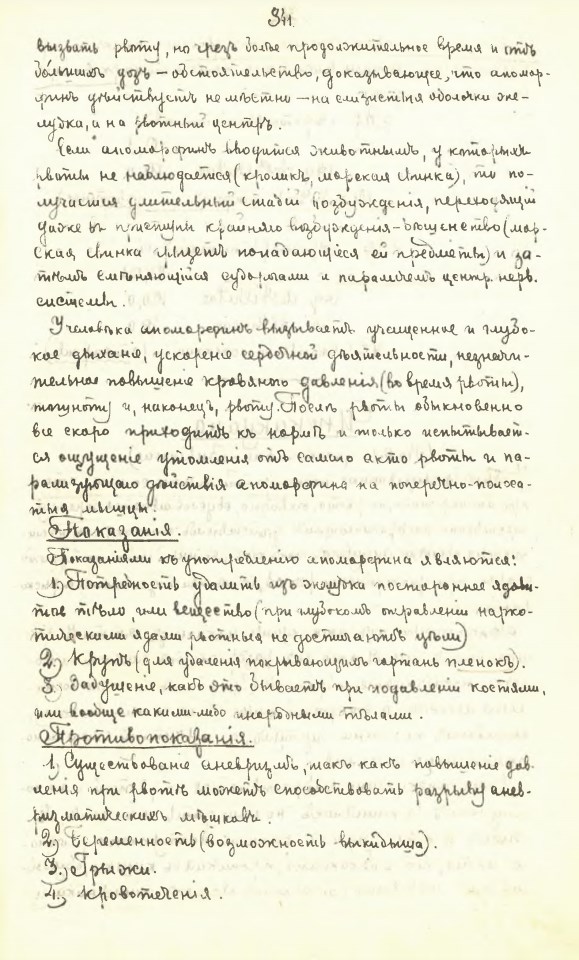 341.
вызвать рвоту, но чрезъ болѣе продолжительное время и отъ
бо́льшихъ дозъ — обстоятельство, доказывающее, что апомор-
финъ дѣйствуетъ не мѣстно — на слизистыя оболочки же-
лудка, а на рвотный центръ.
Если апоморфинъ вводится животнымъ, у которыхъ
рвоты не наблюдается (кроликъ, морская свинка), то по-
лучается длительный стадій возбужденія, переходящій
даже въ приступы крайняго возбужденія - бѣшенство (мор-
ская свинка грызетъ попадающіеся ей предметы) и за-
тѣмъ смѣняющійся судорогами и параличемъ центр. нерв.
системы.
У человѣка апоморфинъ вызываетъ учащенное и глубо-
кое дыханіе, ускореніе сердечной дѣятельности, незначи-
тельное повышеніе кровяного давленія (во время рвоты),
тошноту и, наконецъ, рвоту. Послѣ рвоты обыкновенно
все скоро приходитъ къ нормѣ и только испытывает-
ся ощущеніе утомленія отъ самаго акта рвоты и па-
рализующаго дѣйствія апоморфина на поперечно-полоса-
тыя мышцы.
Показанія.
Показаніями къ употребленію апоморфина являются:
1.) Потребность удалить изъ желудка постороннее ядови-
тое тѣло, или вещество (при глубокомъ отравленіи нарко-
тическими ядами рвотныя не достигаютъ цѣли)
2.) Крупъ (для удаленія покрывающихъ гортань пленокъ).
3.) Задушеніе, какъ это бываетъ при подавленіи костями,
или вообще какими-либо инородными тѣлами.
Противопоказанія.
1.) Существованіе аневризмъ, такъ какъ повышеніе дав-
ленія при рвотѣ можетъ способствовать разрыву анев-
ризматическихъ мѣшковъ.
2.) Беременность (возможность выкидыша).
3.) Грыжи.
4.) Кровотеченія.